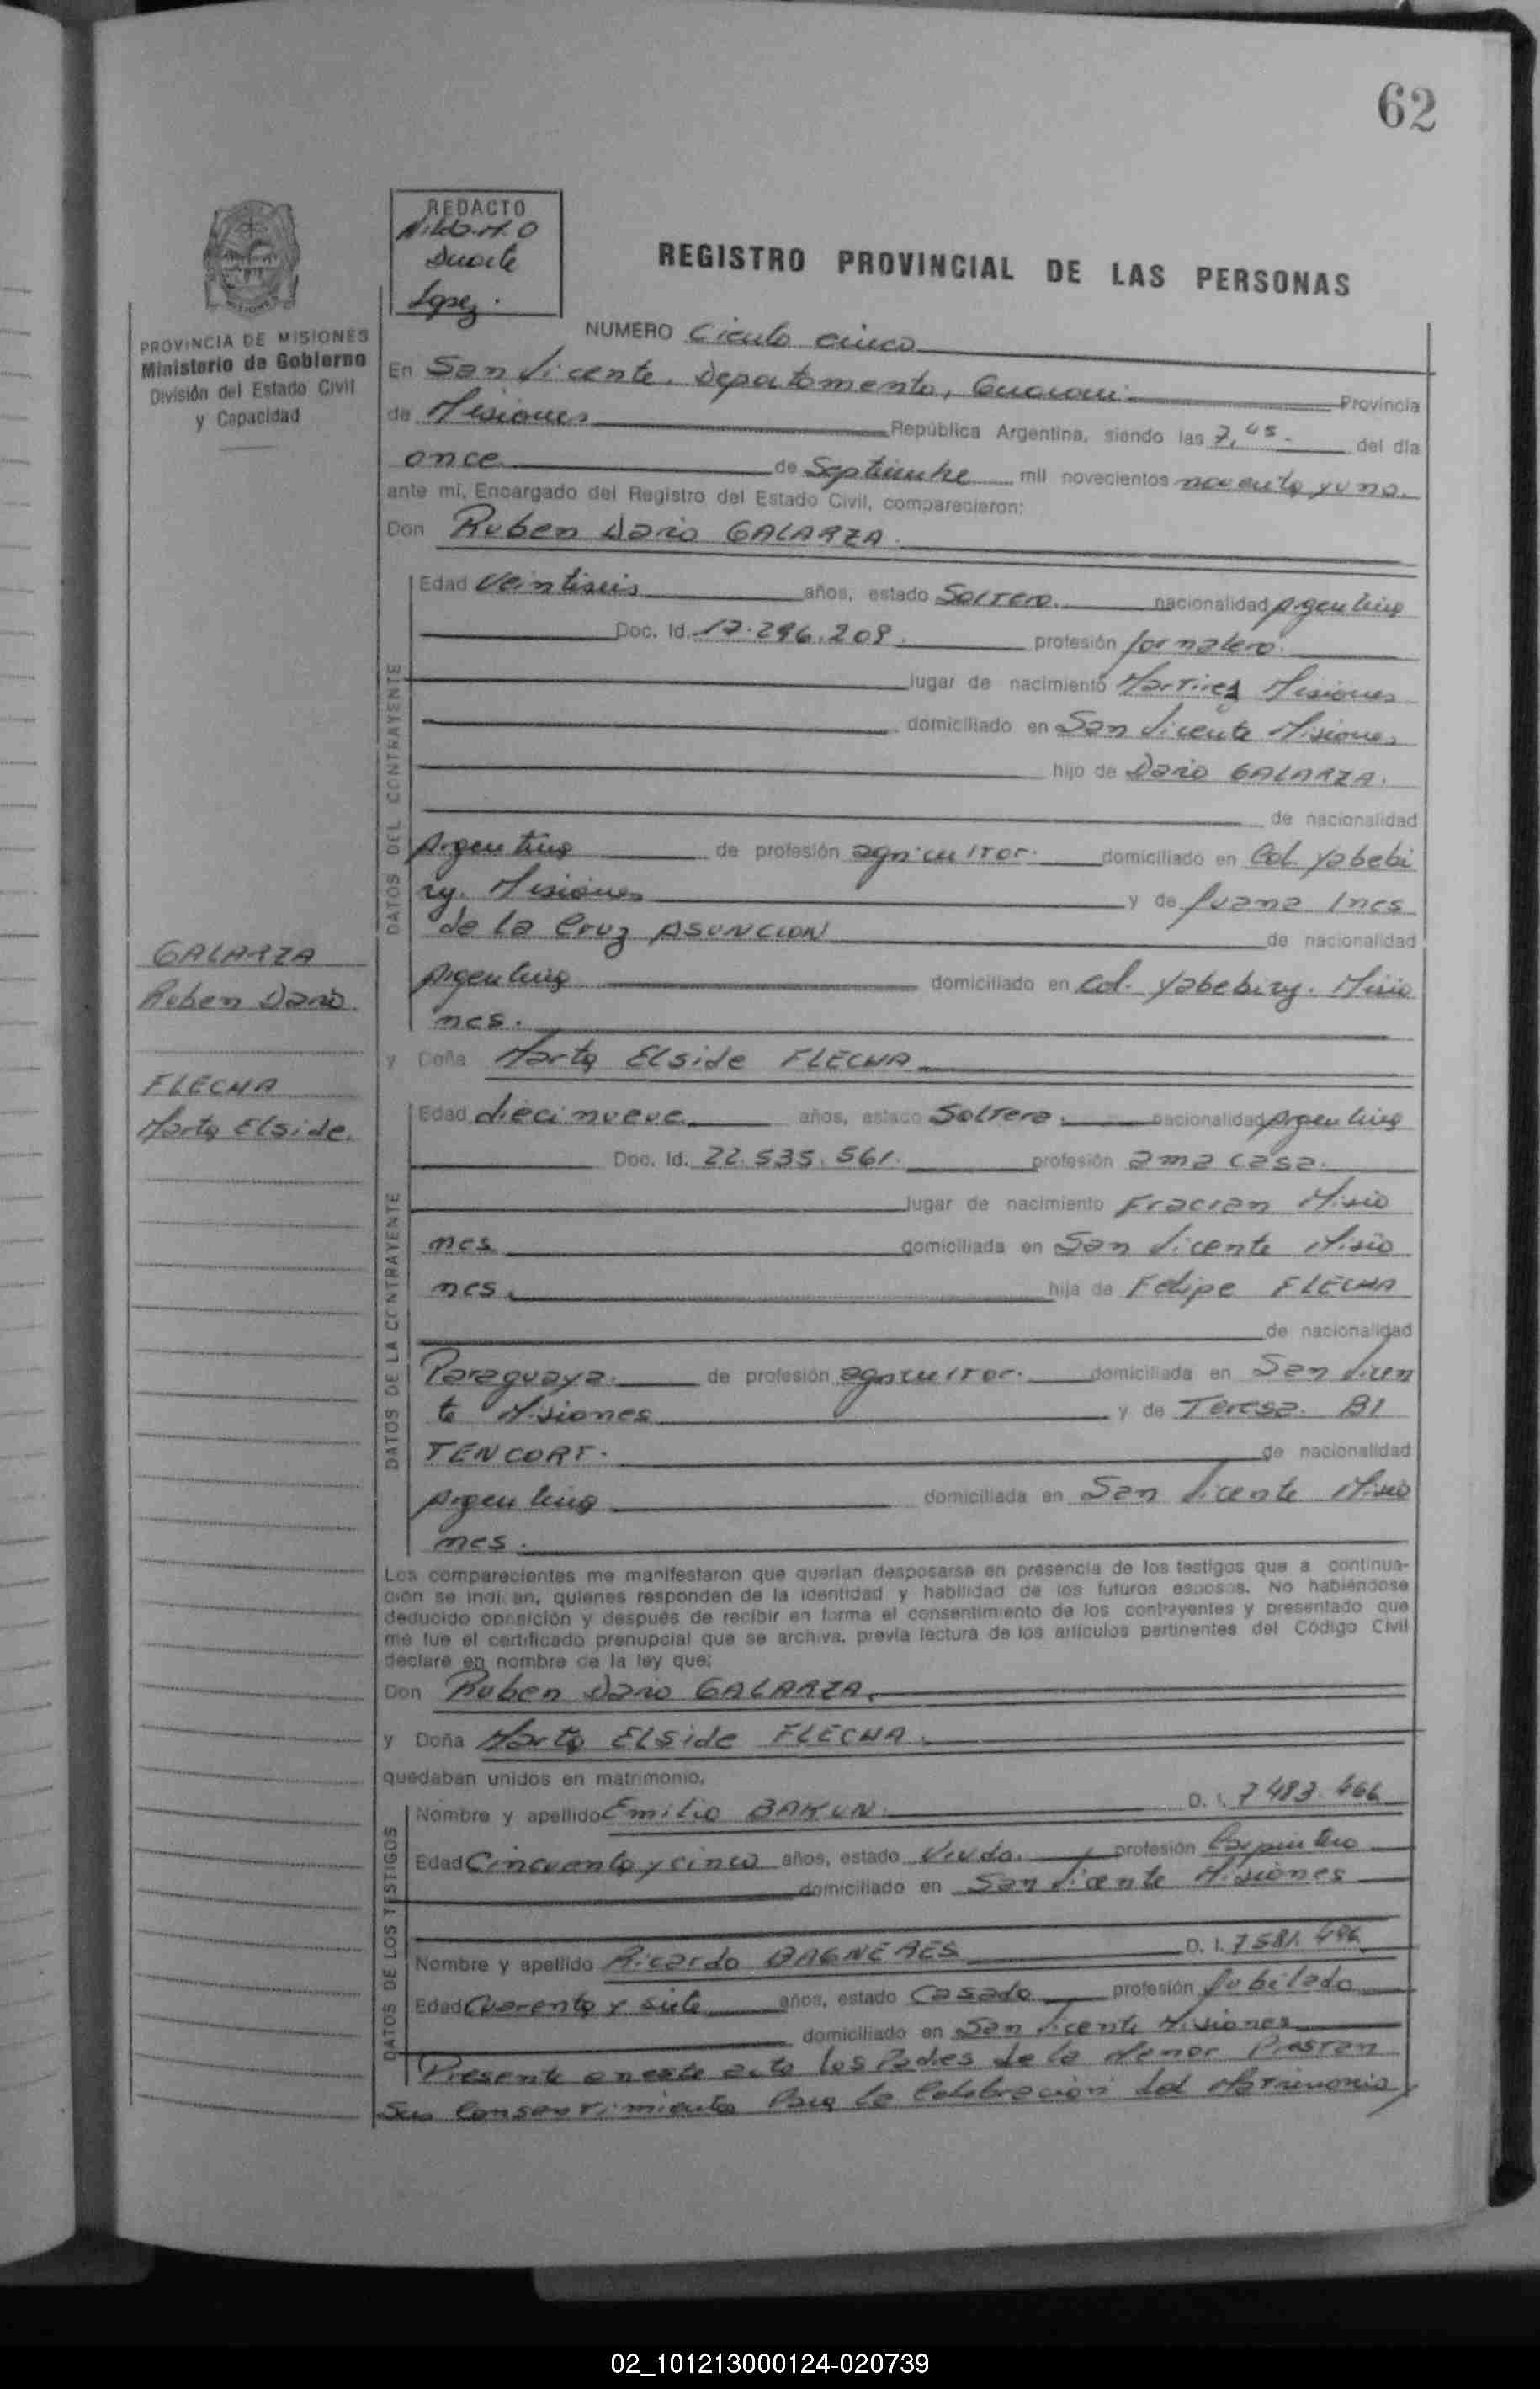 62
REDACTO
Duarte
Lopez.
REGISTRO PROVINCIAL DE LAS PERSONAS
PROVINCIA DE MISIONES
Ministerio de Gobierno
División del Estado Civil
y Capacidad
NUMERO Ciento cinco
En San Vicente, Departamento, Guarani Provincia
de Misiones República Argentina, siendo las 7,45 del día
once de Septiembre mil novecientos noventa y uno.
ante mí, Encargado del Registro del Estado Civil, comparecieron:
Don Ruben Dario GALARZA.
DATOS DEL CONTRAYENTE
Edad veintiseis años, estado Soltero. nacionalidad Argentina
Doc. Id. 17.296.209. profesión Jornalero.
lugar de nacimiento Martires Misiones
domiciliado en San Vicente Misiones
hijo de Dario GALARZA.
de nacionalidad
Argentina de profesión agricultor. domiciliado en Col. Yabebi
ry. Misiones y de Juana Ines
de la Cruz ASUNCION de nacionalidad
Argentina domiciliado en Col. Yabebiry. Misio
nes.
GALARZA
Ruben Dario.
FLECHA
Marta Elside.
y Doña Marta Elside FLECHA
DATOS DE LA CONTRAYENTE
Edad diecinueve años, estado Soltera. nacionalidad Argentina
Doc. Id. 22.535.561. profesión ama casa.
lugar de nacimiento Fracran Misio
nes domiciliada en San Vicente Misio
nes. hija de Felipe FLECHA
de nacionalidad
Paraguaya. de profesión agricultor. domiciliada en San Vicen
te Misiones y de Teresa. BI
TENCORT. de nacionalidad
Argentina domiciliada en San Vicente Misio
nes.
Los comparecientes me manifestaron que querían desposarse en presencia de los testigos que a continua-
ción se indican, quienes responden de la identidad y habilidad de los futuros esposos. No habiéndose
deducido oposición y después de recibir en forma el consentimiento de los contrayentes y presentado que
me fue el certificado prenupcial que se archiva, previa lectura de los artículos pertinentes del Código Civil
declaré en nombre de la ley que:
Don Ruben Dario GALARZA.
y Doña Marta Elside FLECHA.
quedaban unidos en matrimonio.
DATOS DE LOS TESTIGOS
Nombre y apellido Emilio BAKUN. D. I. 7.483.466
Edad Cincuenta y cinco años, estado Viudo. profesión Carpintero
domiciliado en San Vicente Misiones
Nombre y apellido Ricardo BAGNERES D. I. 7581.496
Edad Cuarenta y siete años, estado Casado profesión Jubilado
domiciliado en San Vicente Misiones
Presente en este acto los Padres de la Menor Prestan
Su Consentimiento Para la Celebracion del Matrimonio
02_101213000124-020739